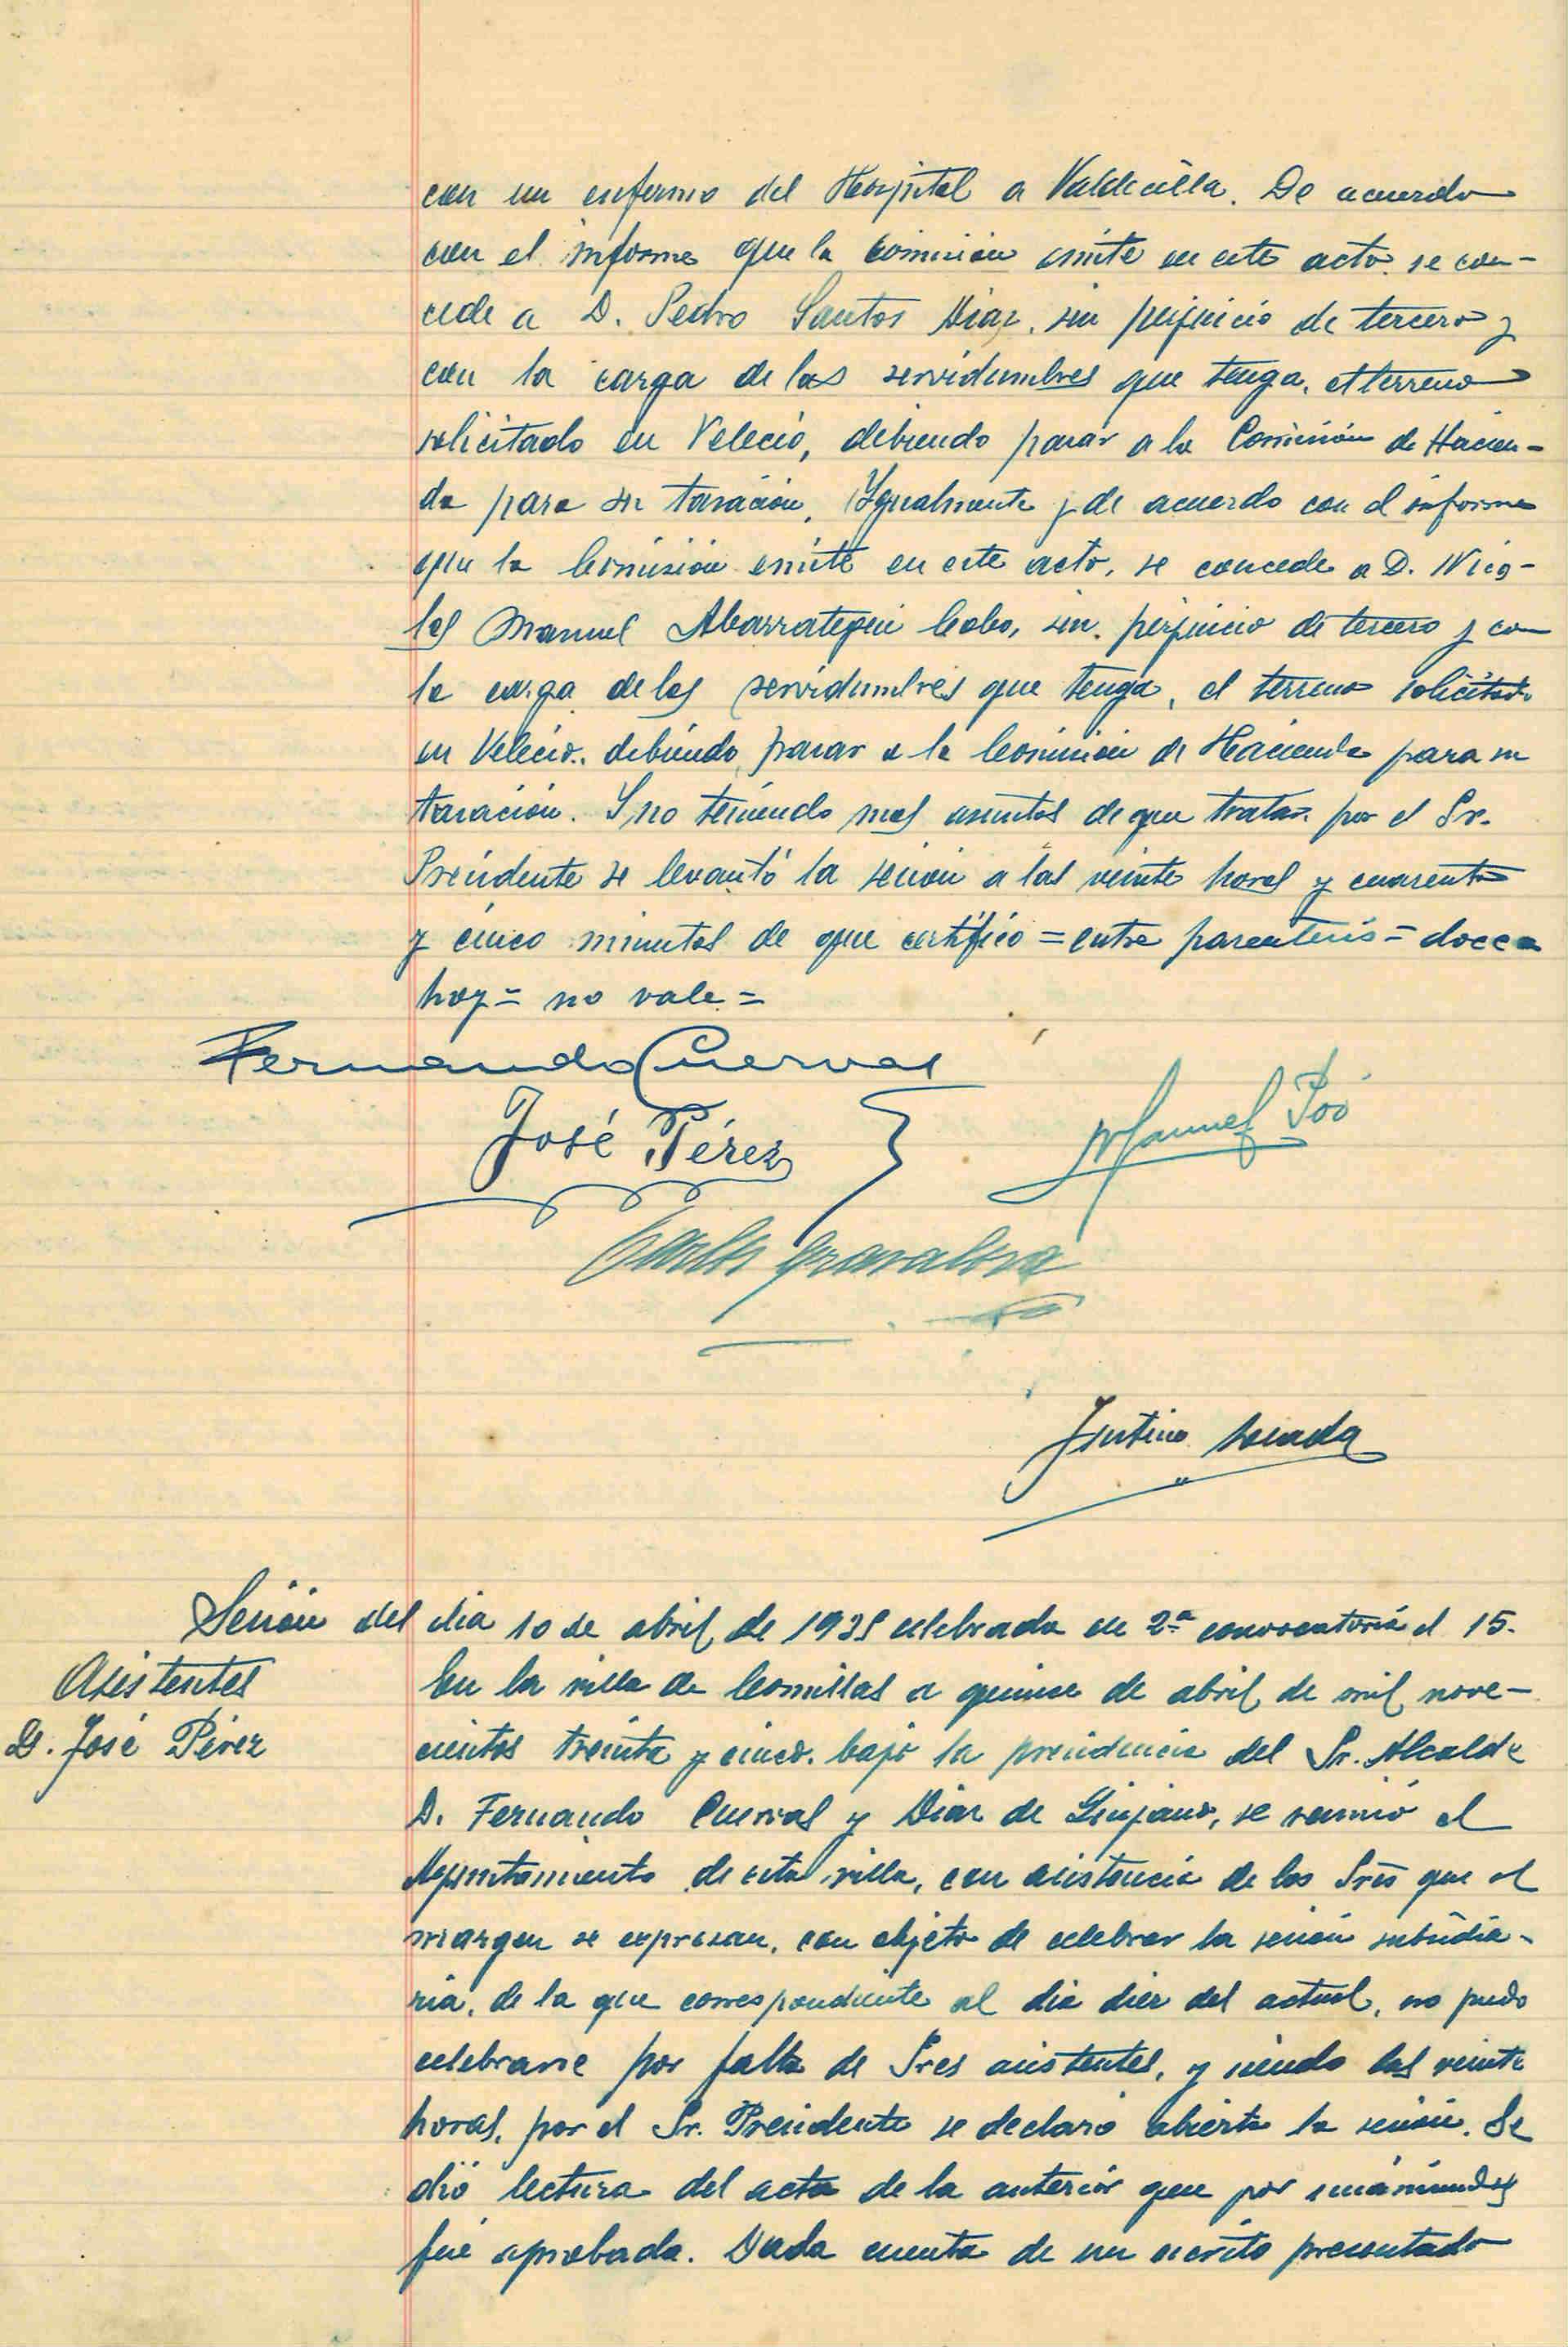 con un enfermo del Hospital a Valdecilla. De acuerdo
con el informe que la Comisión emite en este acto se con-
cede a D. Pedro Santos Diaz, sin perjuicio de tercero y
con la carga de las servidumbres que tenga, el terreno
solicitado en Velecio, debiendo pasar a la Comisión de Hacien-
da para su tasación. Ygualmente y de acuerdo con el informe
que la Comisión emite en este acto, se concede a D. Nico-
las Manuel Abarrategui Cobo, sin perjuicio de tercero y con
la carga de las servidumbres que tenga, el terreno solicitado
en Velecio, debiendo pasar a la Comisión de Hacienda para su
tasación. Y no teniendo mas asuntos de que tratar por el Sr.
Presidente se levantó la sesión a las veinte horas y cuarenta
y cinco minutos de que certifico = entre parentesis =
hoy = no vale =
Fernando Cuervas
José Pérez
Manuel Poo
Carlos
Justino
Sesión del dia 10 de abril de 1935 celebrada en 2ª convocatoria el 15.
Asistentes
D. José Pérez
En la villa de Comillas a quince de abril de mil nove-
cientos treinta y cinco, bajo la presidencia del Sr. Alcalde
D. Fernando Cuervas y Diaz de Quijano, se reunió el
Ayuntamiento de esta villa, con asistencia de los Sres que al
margen se expresan, con objeto de celebrar la sesión subsidia-
ria, de la que correspondiente al dia diez del actual, no pudo
celebrarse por falta de Sres asistentes, y siendo las veinte
horas, por el Sr. Presidente se declaró abierta la sesión. Se
dió lectura del acta de la anterior que por unanimidad
fué aprobada. Dada cuenta de un escrito presentado